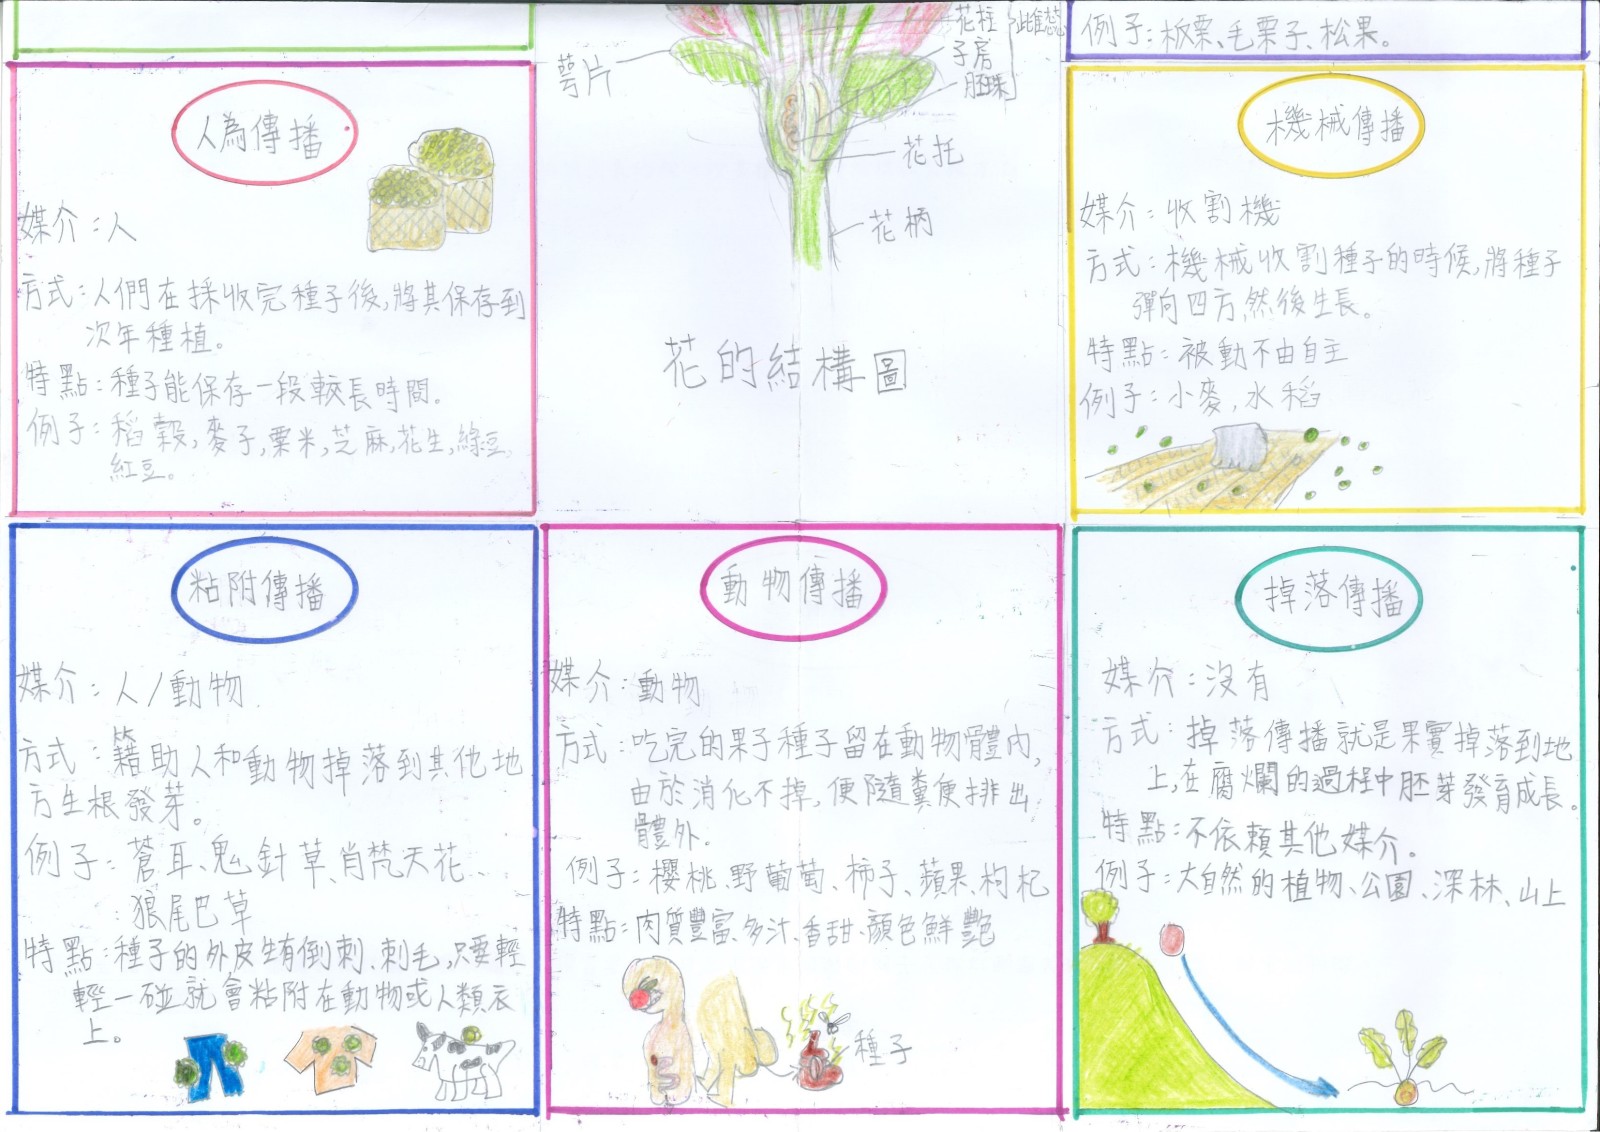 花柱
子房
胚珠
雌蕊
萼片
花托
花柄
花的結構圖
例子：板栗、毛栗子、松果。
人為傳播
媒介：人
方式：人們在採收完種子後，將其保存到
次年種植。
特點：種子能保存一段較長時間。
例子：稻穀，麥子，粟米，芝麻，花生，綠豆，
紅豆。
機械傳播
媒介：收割機
方式：機械收割種子的時候，將種子
彈向四方，然後生長。
特點：被動不由自主
例子：小麥，水稻
粘附傳播
媒介：人/動物
方式：籍助人和動物掉落到其他地
方生根發芽。
例子：蒼耳、鬼針草、肖梵天花、
狼尾巴草
特點：種子的外皮生有倒刺、刺毛，只要輕
輕一碰就會粘附在動物或人類衣
上。
動物傳播
媒介：動物
方式：吃完的果子種子留在動物體內，
由於消化不掉，便隨糞便排出
體外。
例子：櫻桃、野葡萄、柿子、蘋果、枸杞
特點：肉質豐富、多汁、香甜、顏色鮮艷
種子
掉落傳播
媒介：沒有
方式：掉落傳播就是果實掉落到地
上，在腐爛的過程中胚芽發育成長。
特點：不依賴其他媒介。
例子：大自然的植物、公園、深林、山上